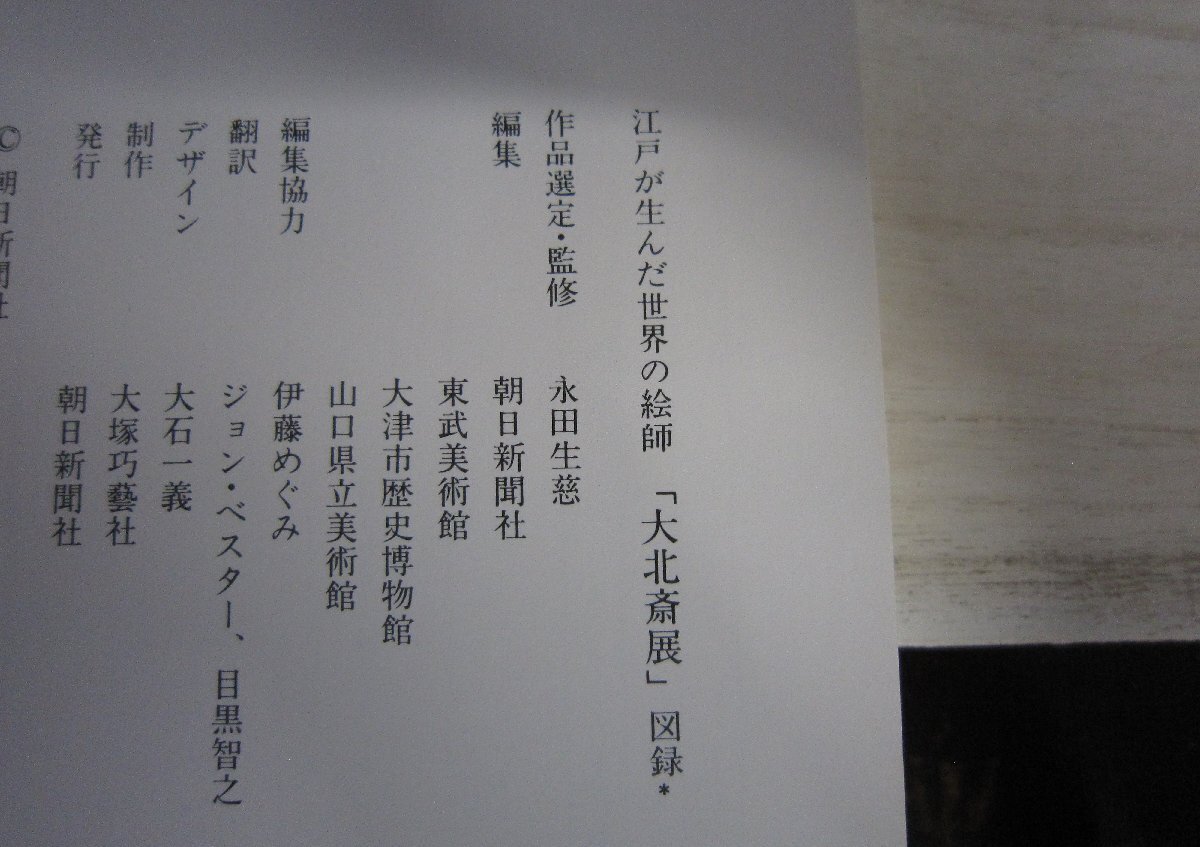 江戸が生んだ世界の絵師 「大北斎展」図録*
作品選定・監修 永田生慈
編集 朝日新聞社
東武美術館
大津市歴史博物館
山口県立美術館
編集協力 伊藤めぐみ
翻訳 ジョン・ベスター、目黒智之
デザイン 大石一義
制作 大塚巧藝社
発行 朝日新聞社
© 朝日新聞社